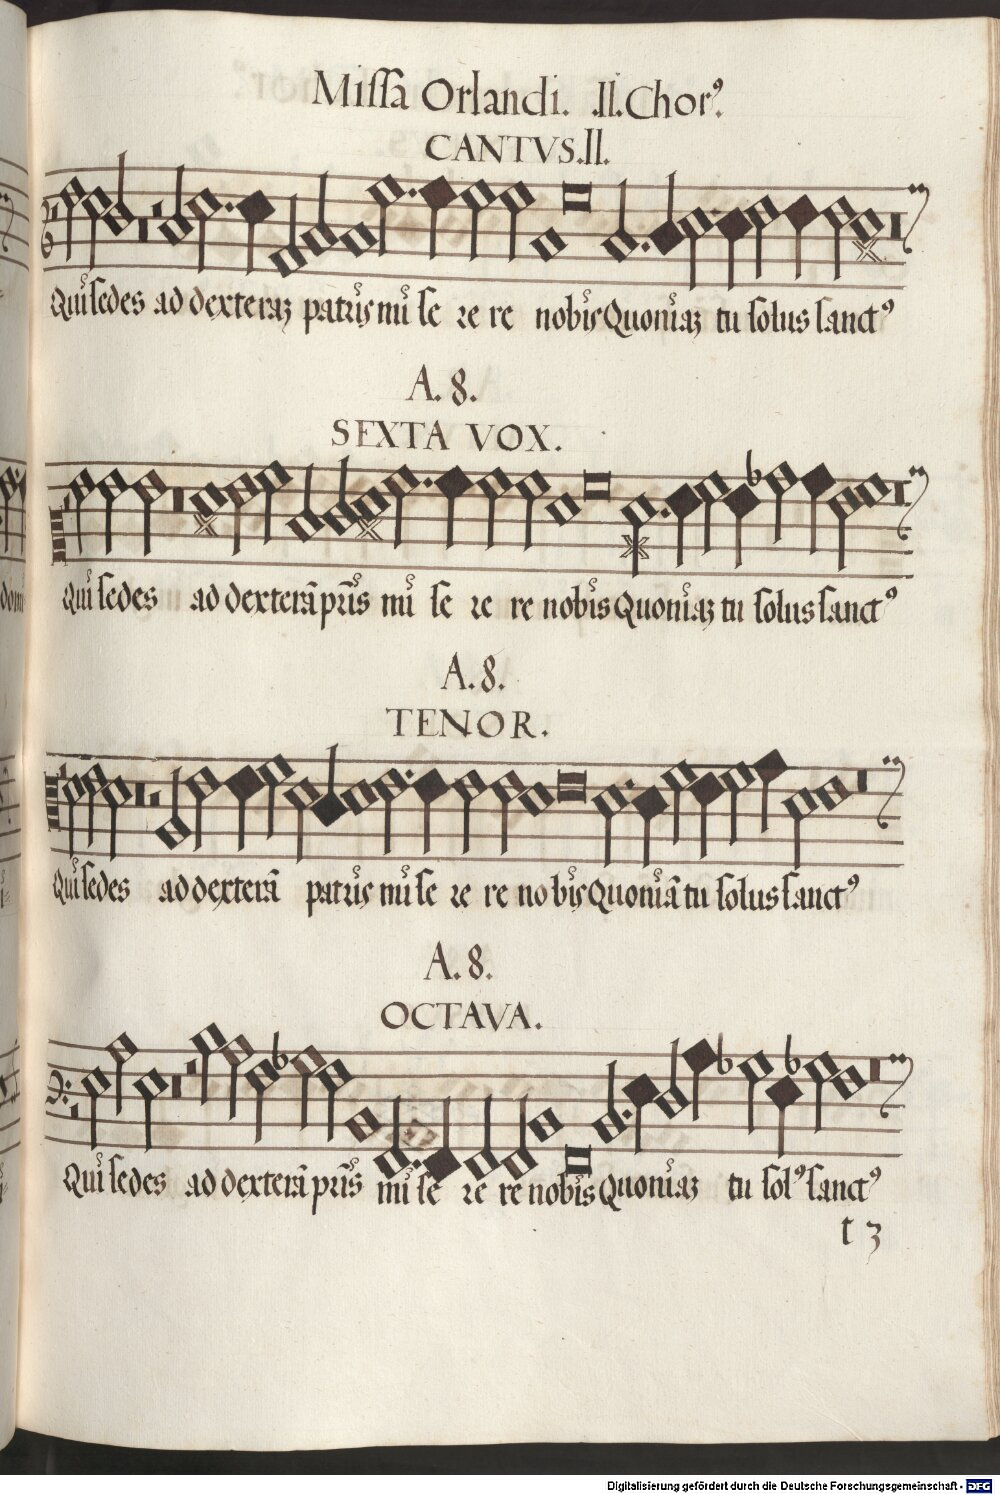 Missa Orlandi. .II. Chorꝰ.
CANTVS.II.
Qui sedes ad dexteraz patris mi se re re nobis Quoniaz tu solus sanctꝰ
A. 8.
SEXTA VOX.
Qui sedes ad dexterā pr̄is mi se re re nobis Quoniaz tu solus sanctꝰ
A. 8.
TENOR.
Qui sedes ad dexterā patris mi se re re no bis Quoniā tu solus sanctꝰ
A. 8.
OCTAVA.
Qui sedes ad dexterā pr̄is mi se re re nobis Quoniaz tu solꝰ sanctꝰ
t 3
Digitalisierung gefördert durch die Deutsche Forschungsgemeinschaft - DFG